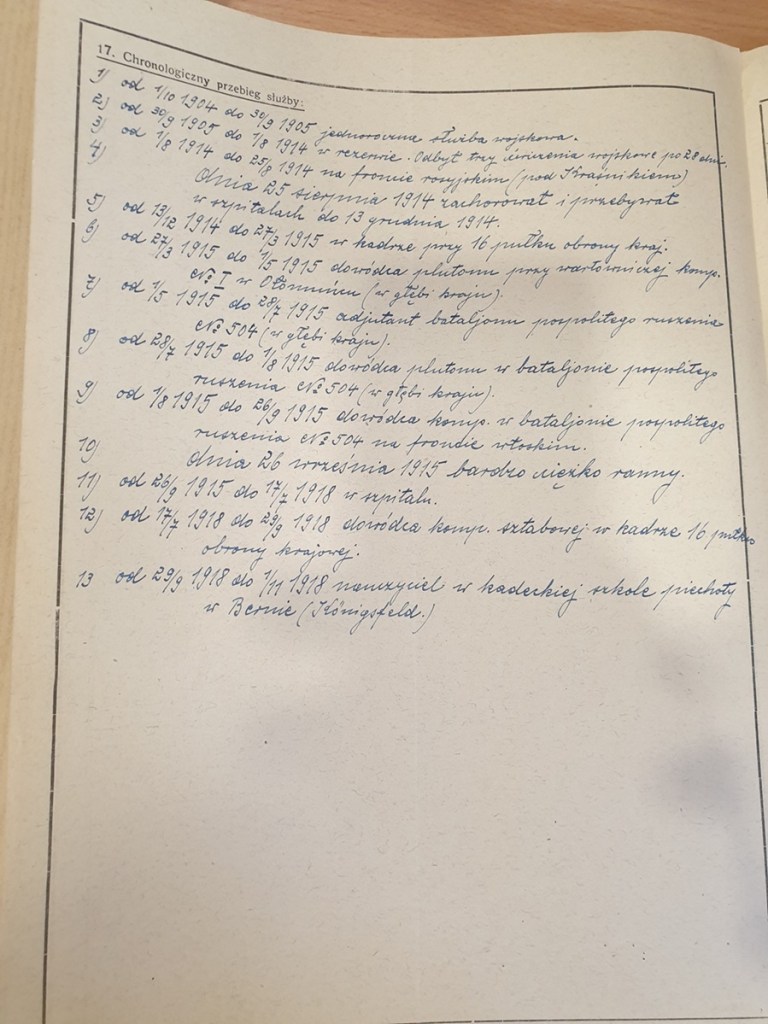 17. Chronologiczny przebieg służby:
1) od 1/10 1904 do 30/9 1905 jednoroczna służba wojskowa.
2) od 30/9 1905 do 1/8 1914 w rezerwie. Odbył trzy ćwiczenia wojskowe po 28 dni.
3) od 1/8 1914 do 25/8 1914 na froncie rosyjskim (pod Kraśnikiem)
4) dnia 25 sierpnia 1914 zachorował i przebywał
w szpitalach do 13 grudnia 1914.
5) od 13/12 1914 do 27/3 1915 w kadrze przy 16 pułku obrony kraj.
6) od 27/3 1915 do 1/5 1915 dowódca plutonu przy wartowniczej komp.
№ I w Ołomuńcu (w głębi kraju).
7) od 1/5 1915 do 28/7 1915 adjutant bataljonu pospolitego ruszenia
№ 504 (w głębi kraju).
8) od 28/7 1915 do 1/8 1915 dowódca plutonu w bataljonie pospolitego
ruszenia № 504 (w głębi kraju).
9) od 1/8 1915 do 26/9 1915 dowódca komp. w bataljonie pospolitego
ruszenia № 504 na froncie włoskim.
10) dnia 26 września 1915 bardzo ciężko ranny.
11) od 26/9 1915 do 17/7 1918 w szpitalu.
12) od 17/7 1918 do 29/9 1918 dowódca komp. sztabowej w kadrze 16 pułku
obrony krajowej.
13 od 29/9 1918 do 1/11 1918 nauczyciel w kadeckiej szkole piechoty
w Bernie (Königsfeld.)